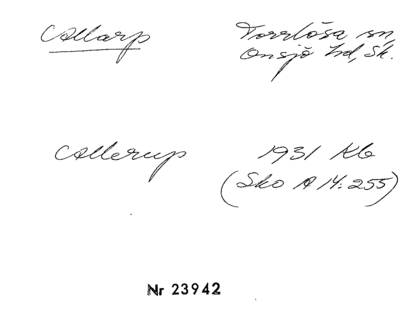 Allarp Torrlösa sn,
Onsjö hd, Sk.
Allerup 1931 Kb
(Sko A 14:255)
Nr 23942